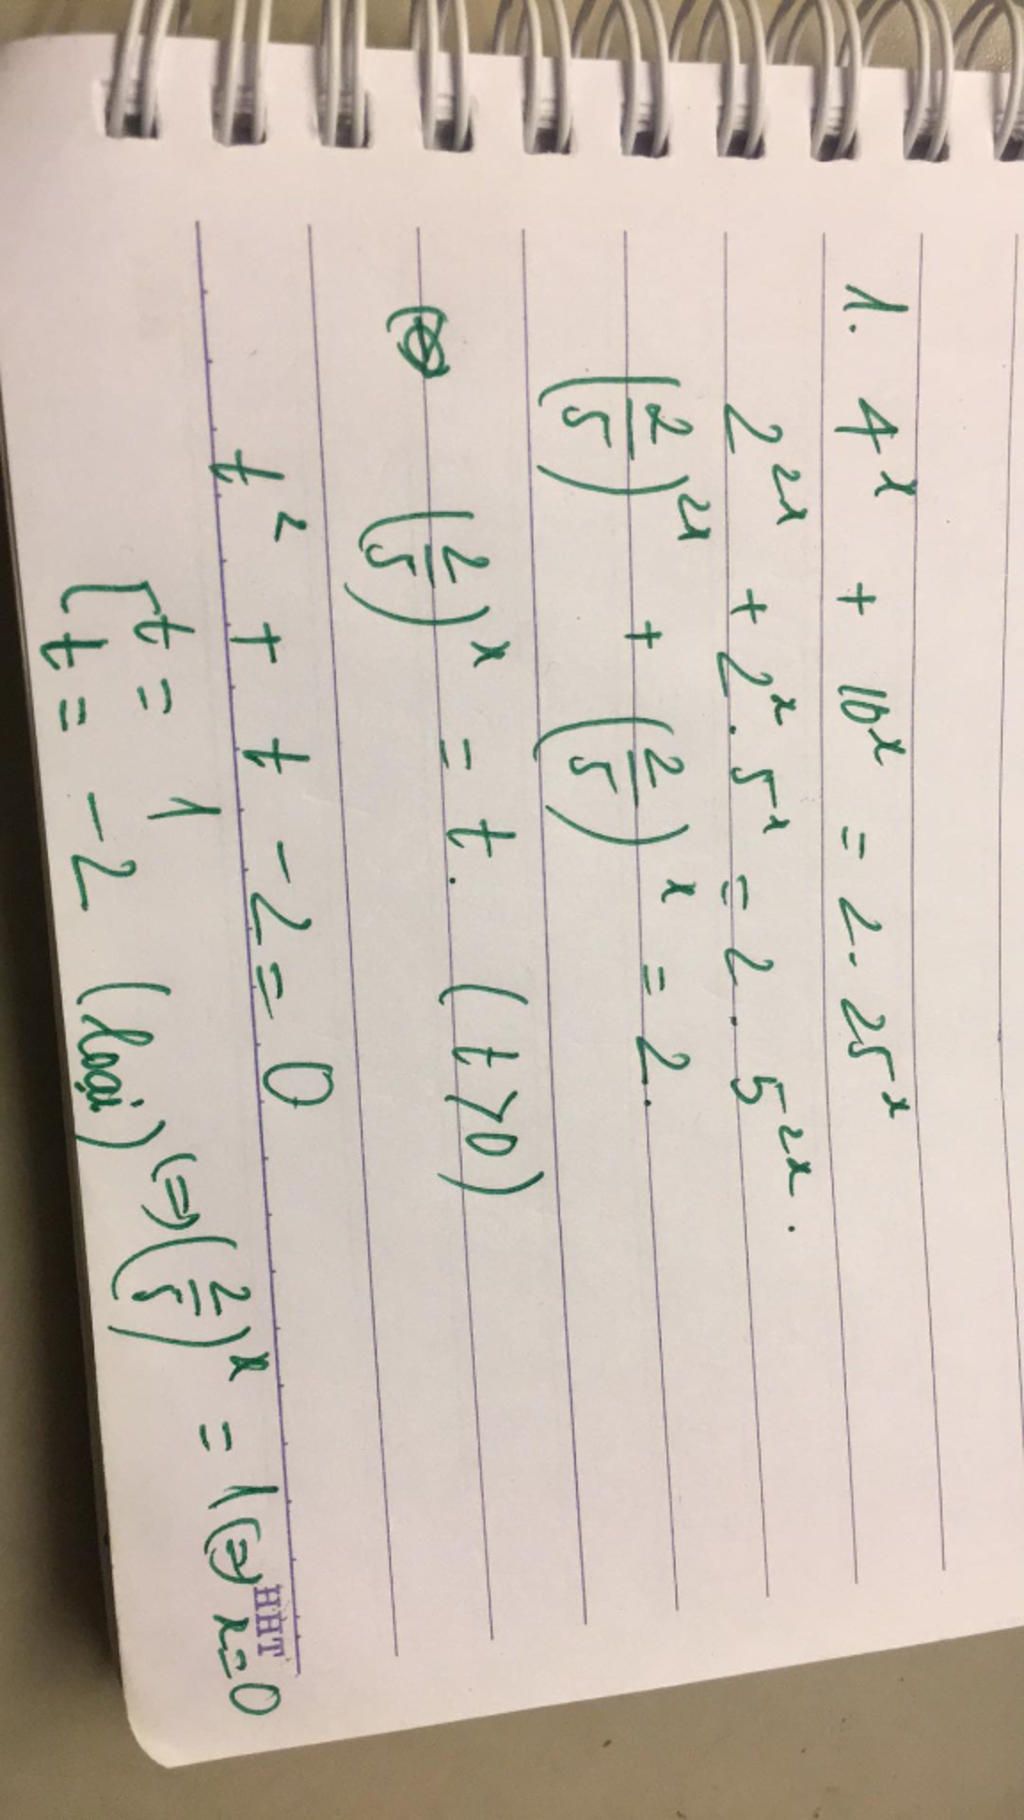 1. 4^x + 10^x = 2. 25^x
2^2x + 2^x. 5^x = 2. 5^2x.
(2/5)^2x + (2/5)^x = 2.
(2/5)^x = t. (t>0)
t^2 + t - 2 = 0
[t = 1
t = -2 (loại) (=) (2/5)^x = 1 (=) x=0
HHT